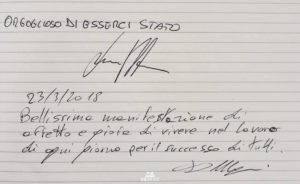 ORGOGLIOSO DI ESSERCI STATO
23/3/2018
Bellissima manifestazione di
affetto e gioia di vivere nel lavoro
di ogni giorno per il successo di tutti.